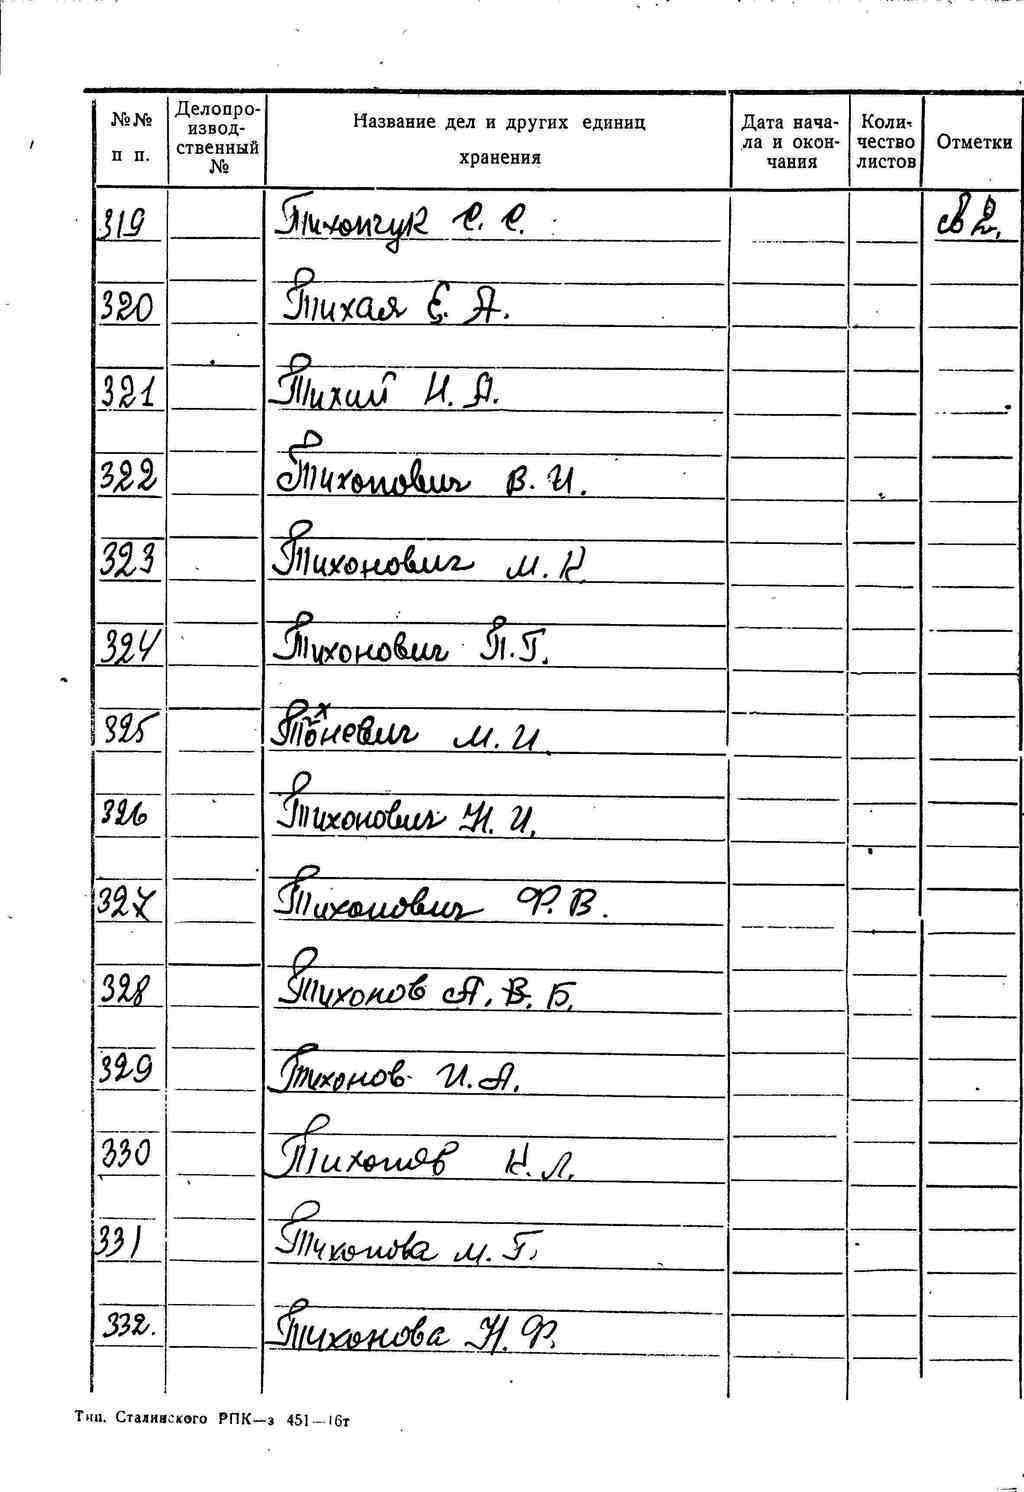 №№ п п. Делопроизводственный № Название дел и других единиц хранения Дата начала и окончания Количество листов Отметки
319 Тихончук С. С. св 2.
320 Тихая Е. А.
321 Тихий И. А.
322 Тихонович В. И.
323 Тихонович М. К
324 Тихонович П. Г.
325 Тохневич М. И.
326 Тихонович Н. И.
327 Тихонович Ф. В.
328 Тихонов А. В. Б.
329 Тихонов И. А.
330 Тихонов К. Л.
331 Тихонова М. Г.
332. Тихонова Н. Ф.
Тип. Сталинского РПК—з 451—16т